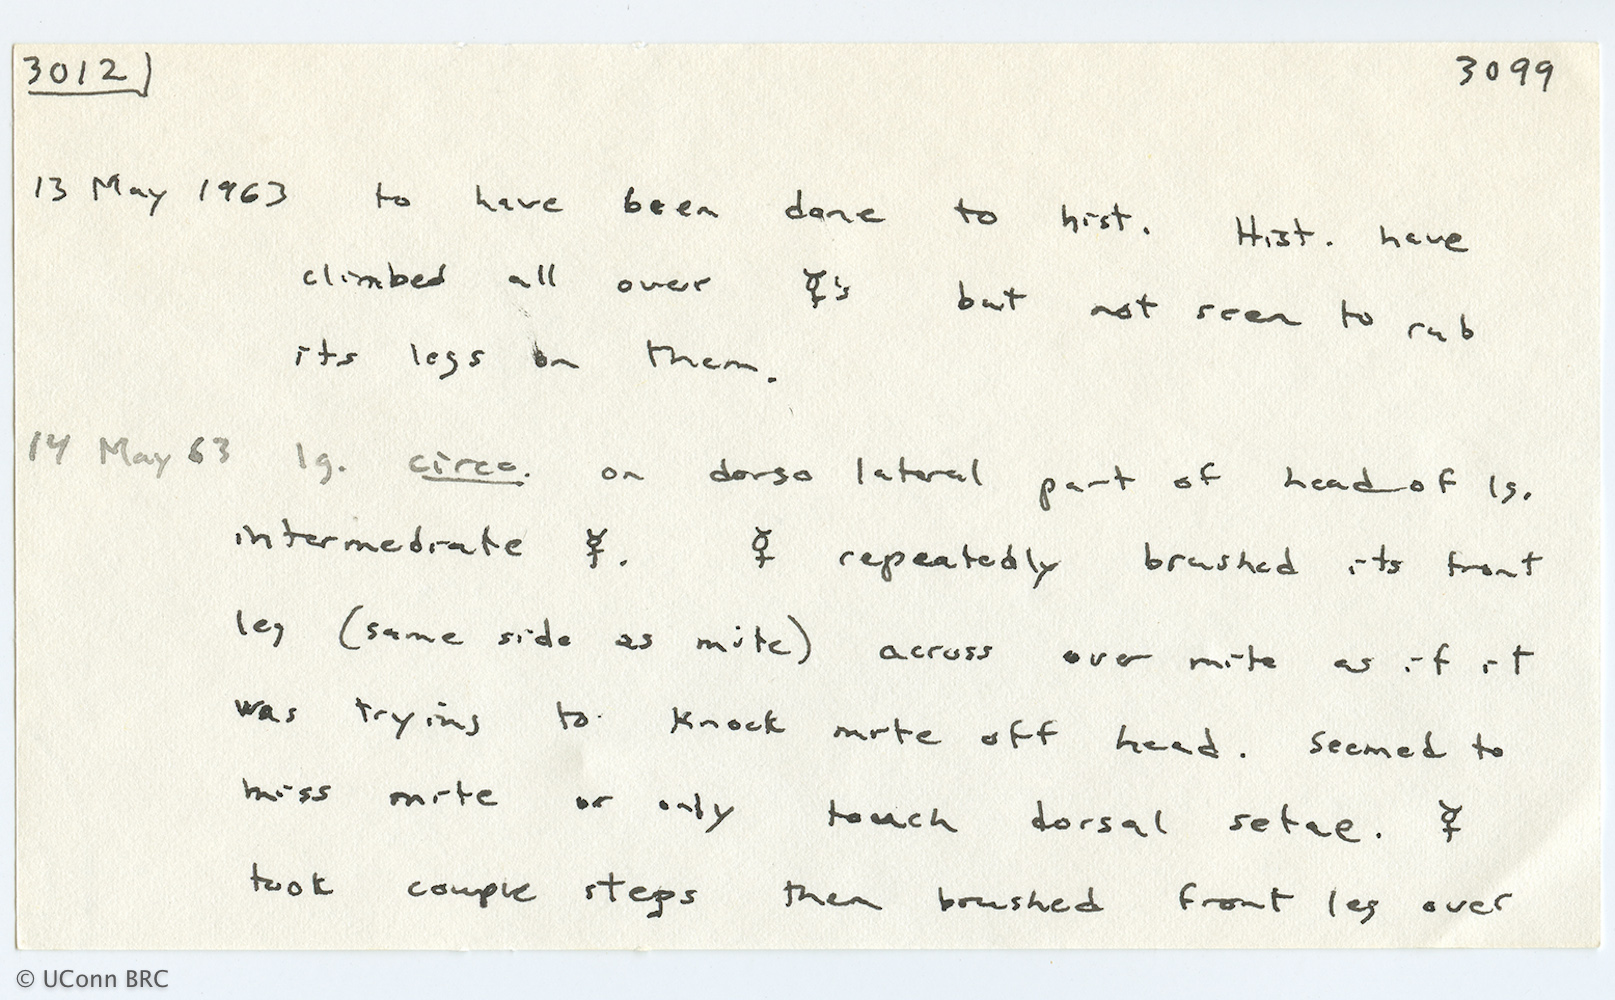 3012 3099
13 May 1963 to have been done to hist. Hist. have
climbed all over ☿'s but not seen to rub
its legs on them.
14 May 63 lg. circo. on dorso lateral part of head of lg.
intermediate ☿. ☿ repeatedly brushed its front
leg (same side as mite) across over mite as if it
was trying to knock mite off head. Seemed to
miss mite or only touch dorsal setae. ☿
took couple steps then brushed front leg over
© UConn BRC